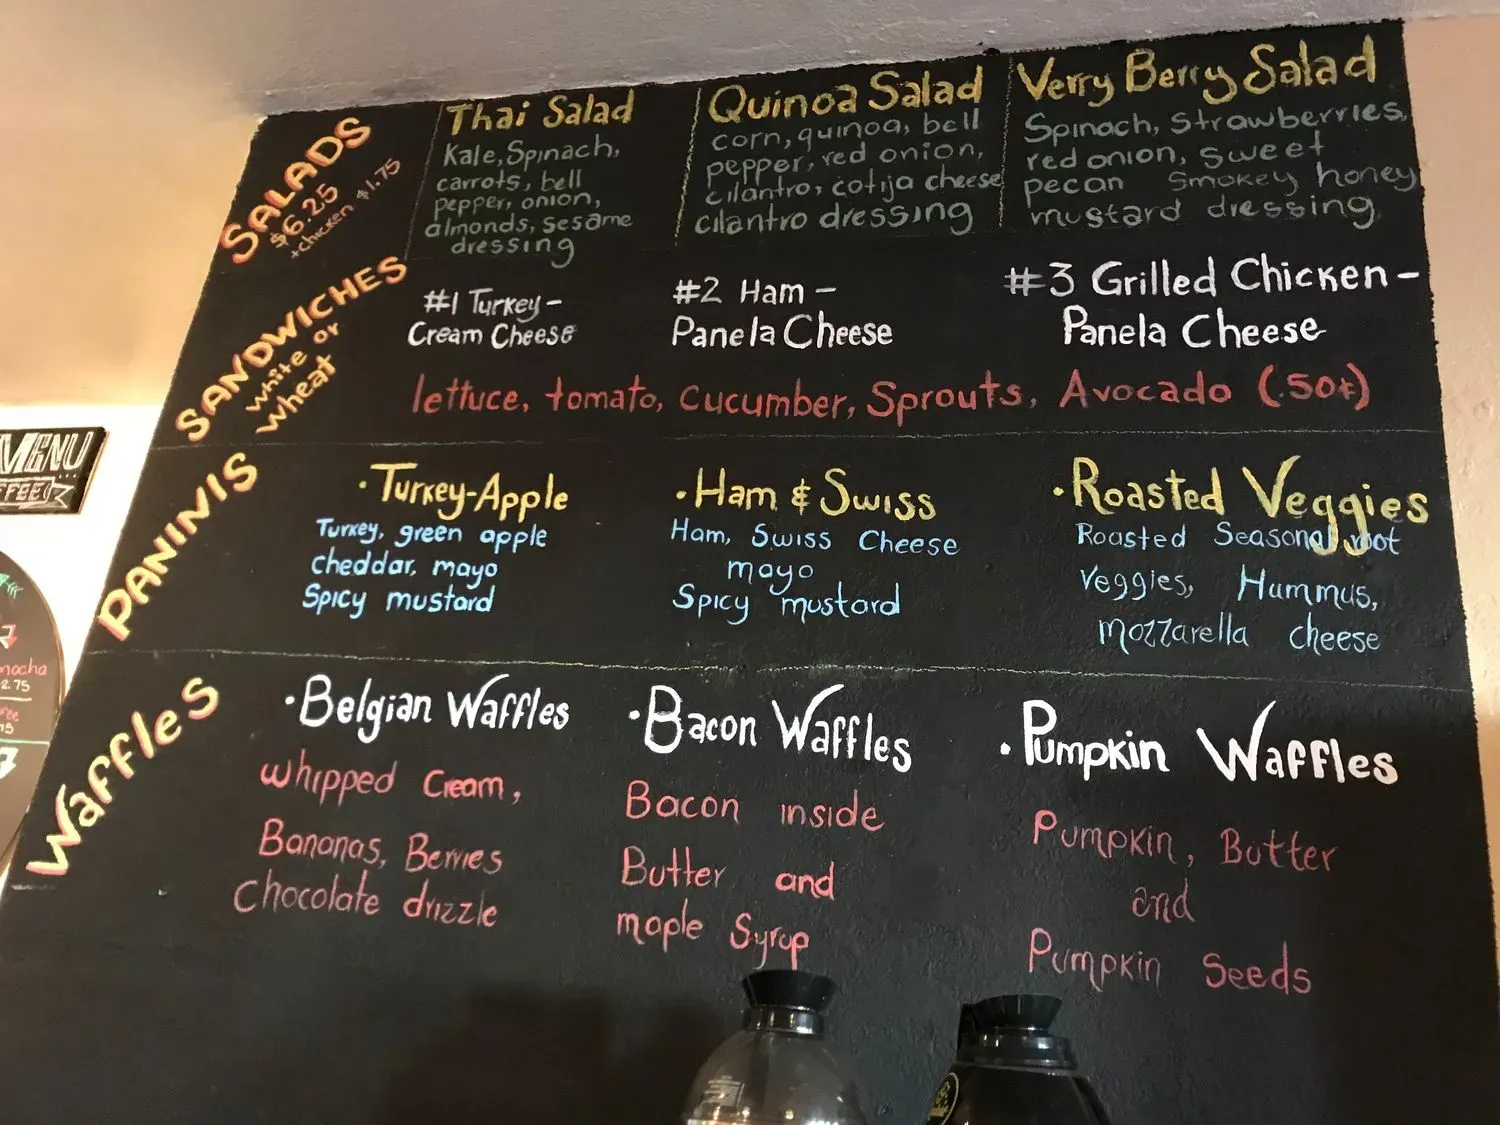 SALADS
$6.25
+chicken $1.75
Thai Salad
Kale, Spinach,
carrots, bell
pepper, onion,
almonds, sesame
dressing
Quinoa Salad
corn, quinoa, bell
pepper, red onion,
cilantro, cotija cheese
cilantro dressing
Verry Berry Salad
Spinach, Strawberries,
red onion, sweet
pecan Smokey honey
mustard dressing
SANDWICHES
white or
wheat
#1 Turkey-
Cream Cheese
#2 Ham -
Panela Cheese
#3 Grilled Chicken -
Panela Cheese
lettuce, tomato, cucumber, Sprouts, Avocado (.50¢)
PANINIS
·Turkey-Apple
Turkey, green apple
cheddar, mayo
Spicy mustard
·Ham & Swiss
Ham, Swiss Cheese
mayo
Spicy mustard
·Roasted Veggies
Roasted Seasonal root
veggies, Hummus,
mozzarella cheese
Waffles
·Belgian Waffles
whipped Cream,
Bananas, Berries
Chocolate drizzle
·Bacon Waffles
Bacon inside
Butter and
maple Syrup
·Pumpkin Waffles
Pumpkin, Butter
and
Pumpkin Seeds
MENU
mocha
2.75